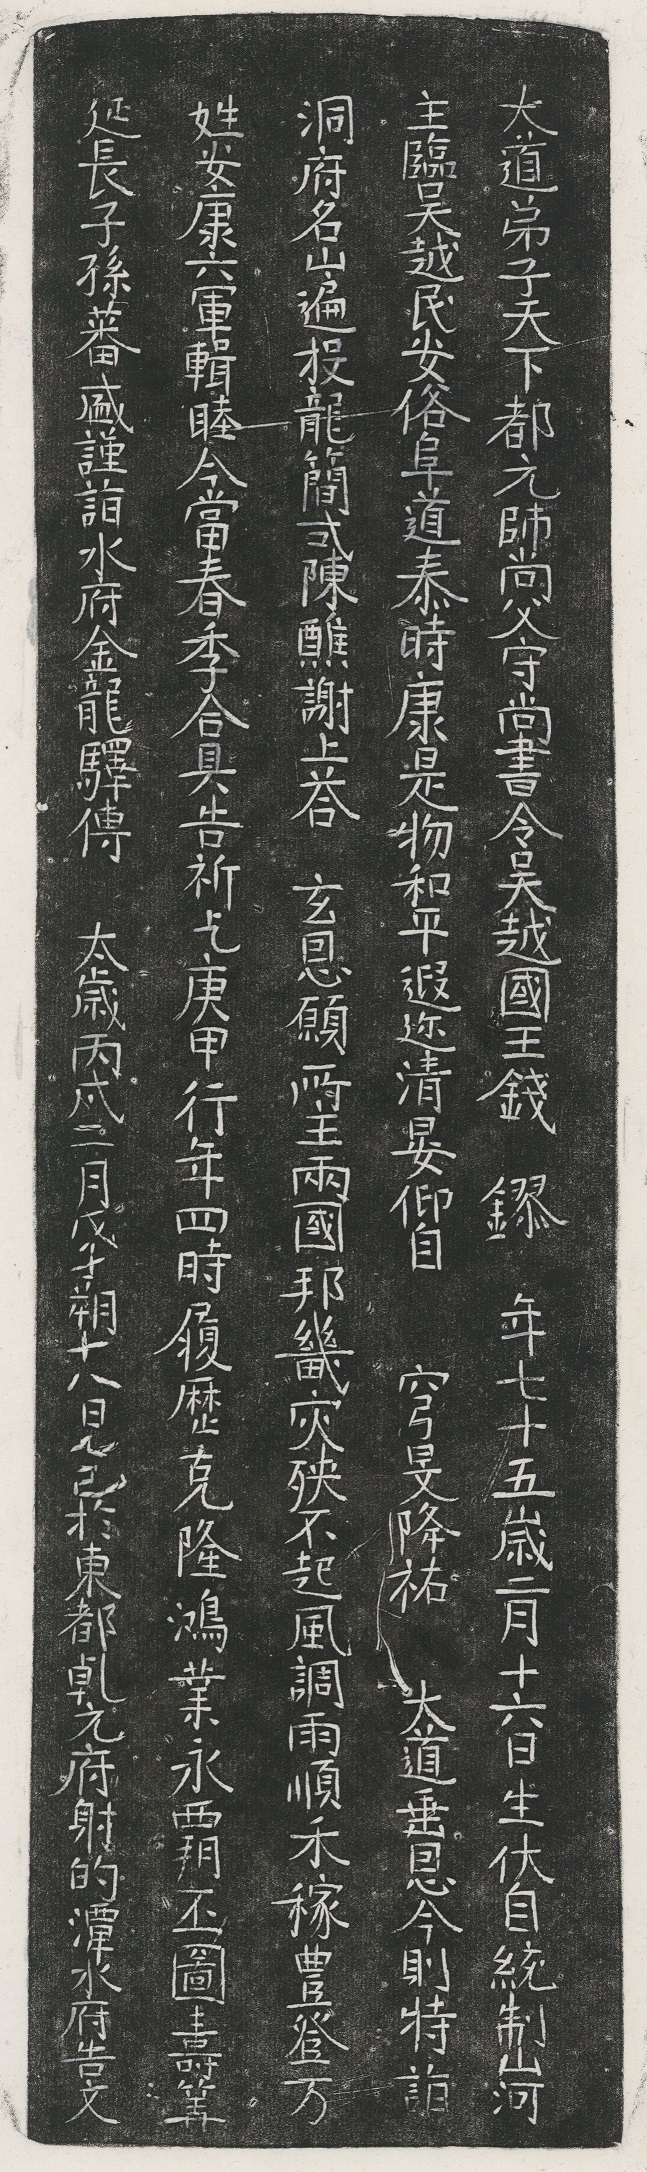 大道弟子天下都元帥尚父守尚書令吳越國王錢 鏐 年七十五歲二月十六日生伏自統制山河
主臨吳越民安俗阜道泰時康是物和平遐迩清晏仰自 穹旻降祐 大道垂恩今則特詣
洞府名山遍投龍簡式陳醮謝上荅 玄恩願所主兩國邦畿灾殃不起風調雨順禾稼豊登万
姓安康六軍輯睦今當春季合具告祈乞庚甲行年四時履歷克隆鴻業永丕圖壽筭
延長子孫蕃盛謹詣水府金龍驛傳 太歲丙戌二月戊子朔十八日乙巳於東都乹元府射的潭水府告文